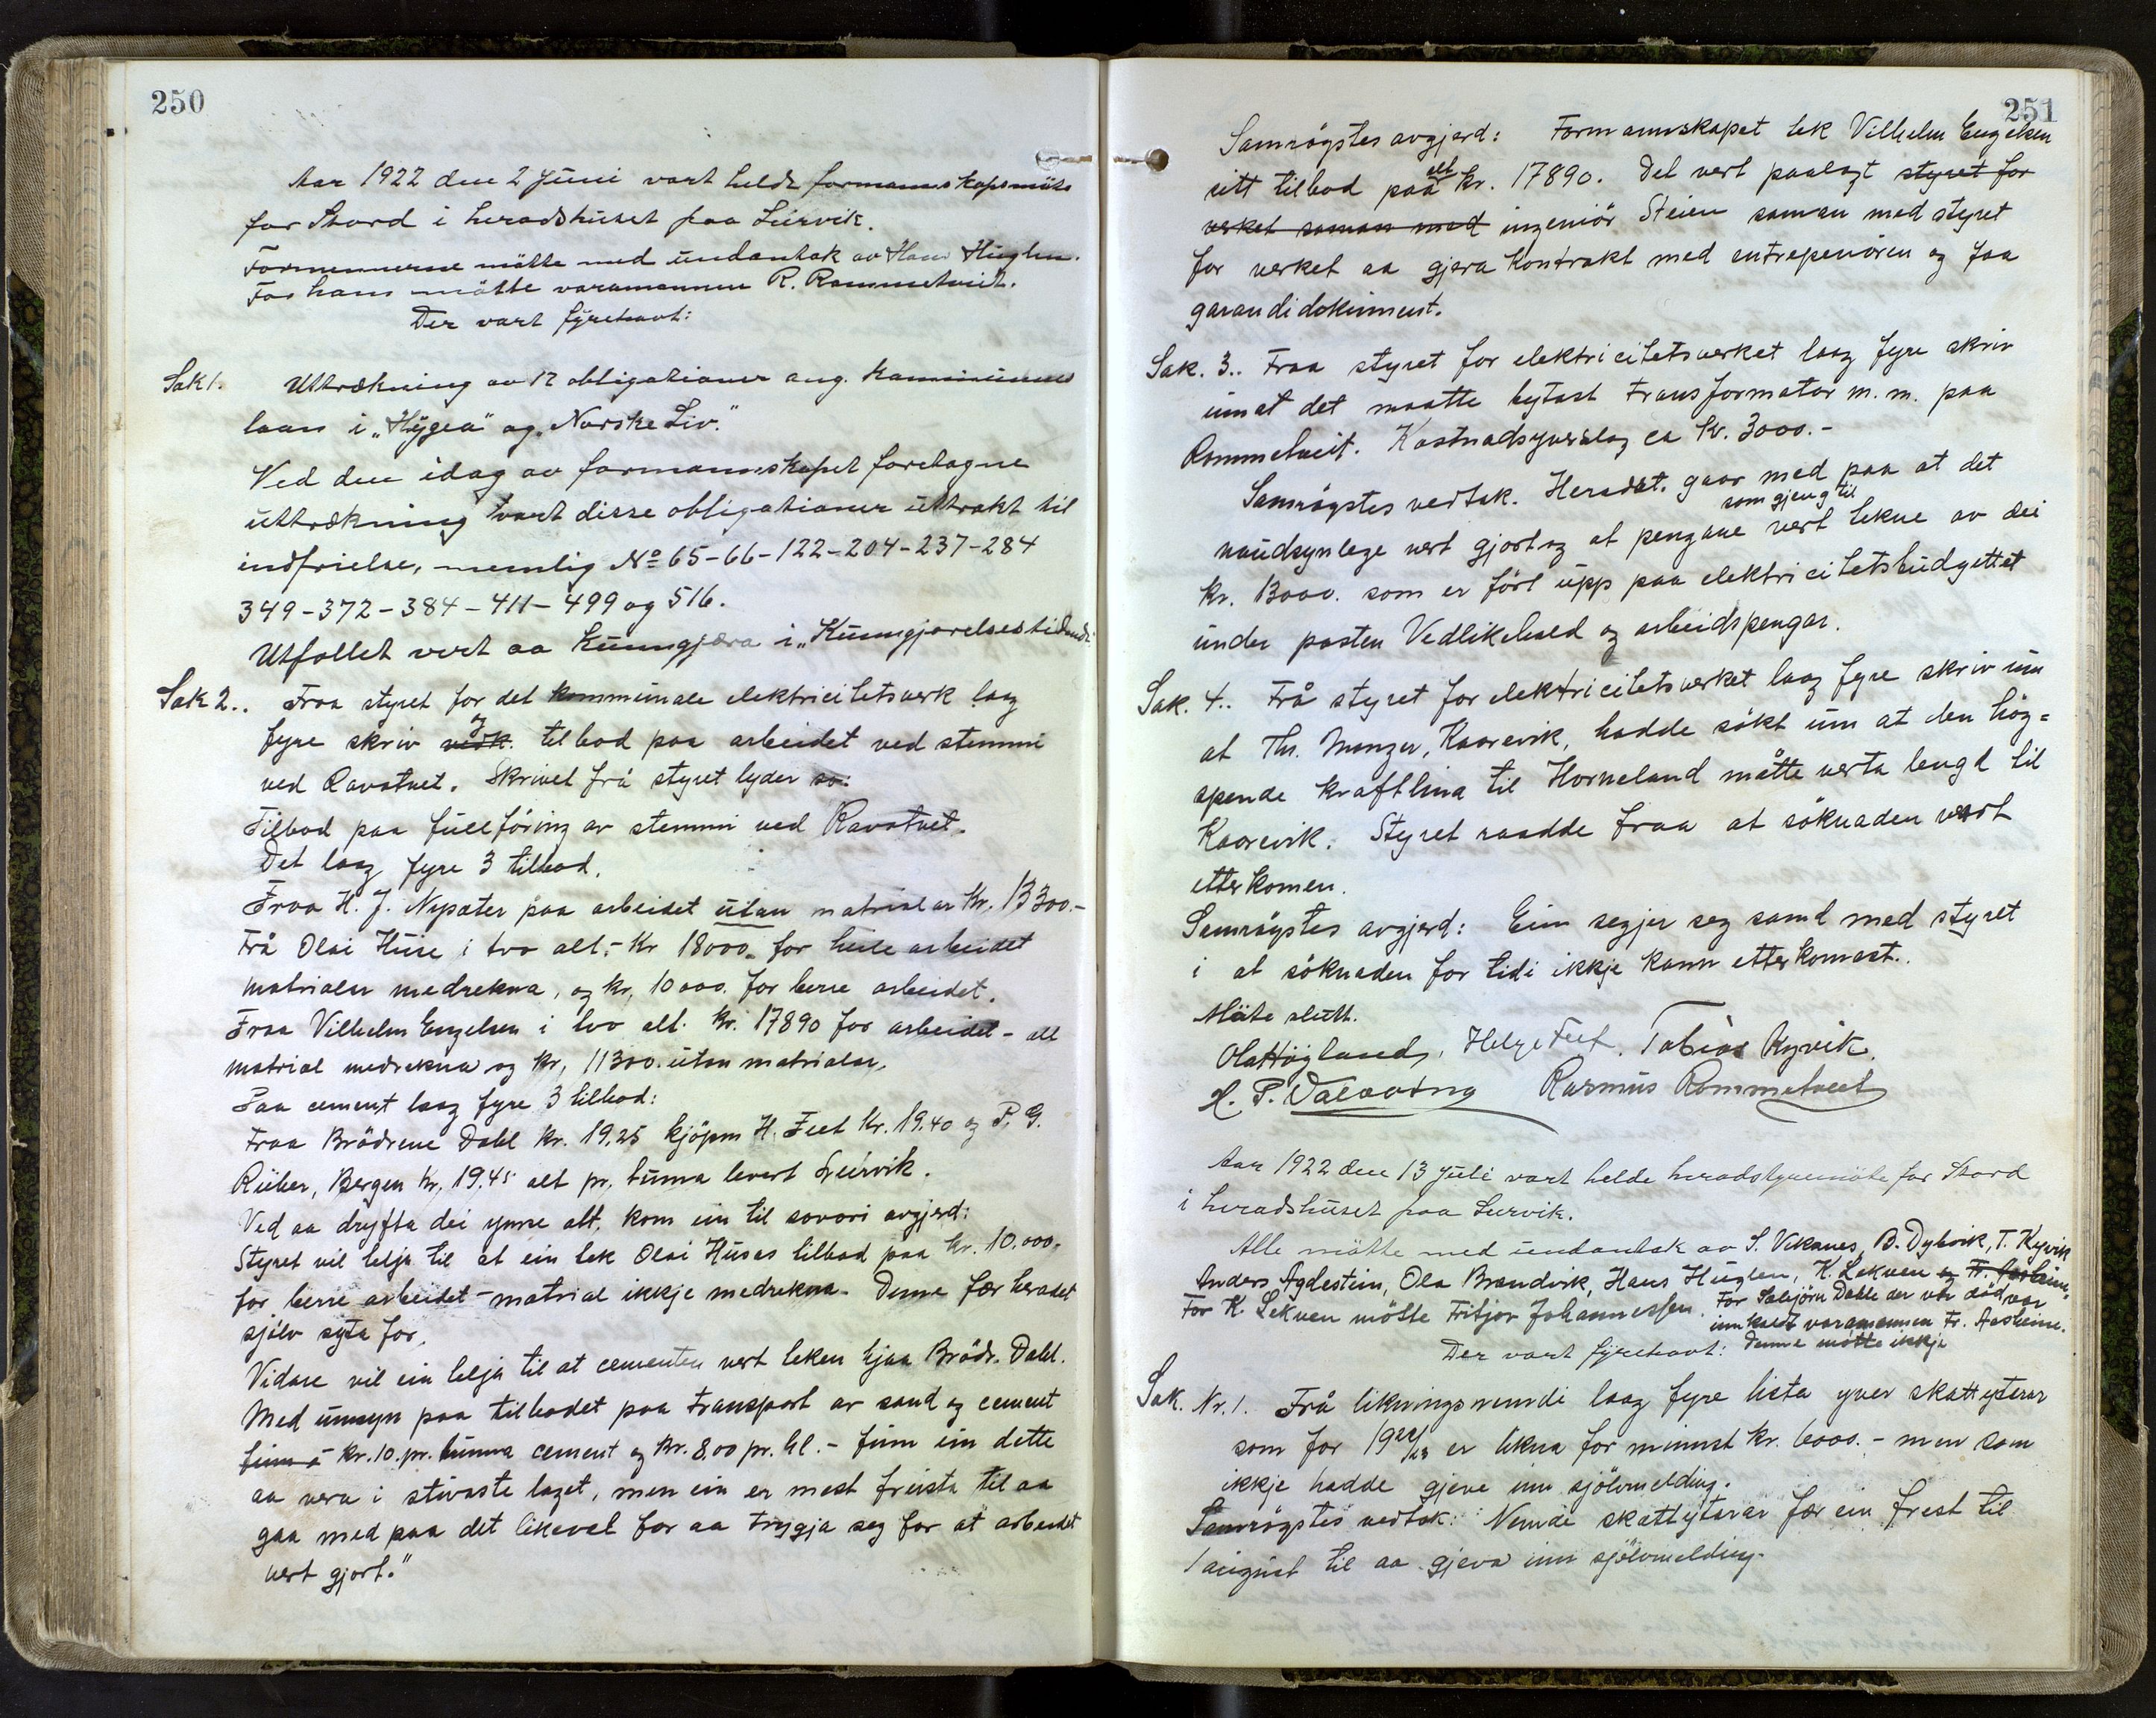 250
Aar 1922 den 2 Juni vart helde formannskapsmöte
for Stord i heradshuset paa Leirvik.
Formennerne mötte med undantak av Hans Huglen.
For hans mötte varamannen R. Rommetveit.
Der vart fyrehavt:
Sak 1. Uttrækning av 12 obligationer ang. kommunens
laan i „Hygea" og „Norske Liv."
Ved den idag av formannskapet foretagne
uttrækning vart disse obligationer uttrakt til
indfrielse, nemlig No 65-66-122-204-237-284
349-372-384-411-499 og 516.
Utfallet vert aa kunngjæra i „Kunngjorelsestidende"
Sak 2.. Fraa styret for det kommunale elektricitetsverk laag
fyre skriv vedk. og tilbod paa arbeidet ved stemmi
ved Ravatnet. Skrivet frå styret lyder so:
Tilbod paa fullföring av stemmi ved Ravatnet.
Det laag fyre 3 tilbod.
Fraa H. J. Nypæter paa arbeidet utan matrialar Kr. 13300.-
Frå Olai Huse i tvo alt.- Kr 18000. for heile arbeidet
matrialer medrekna, og kr. 10000. for berre arbeidet.
Fraa Vilhelm Engelsen i tvo alt. kr. 17890 for arbeidet - alt
matrial medrekna og kr. 11300. utan matrialer.
Paa cement laag fyre 3 tilbod:
Fraa Brödrene Dahl kr. 19,25 kjöpm H. Feet kr. 19.40 og P. G.
Rieber, Bergen kr. 19,45 alt pr. tunna levert Leirvik.
Ved aa dryfta dei ymse alt. kom ein til sovori avgjerd:
Styret vil telja til at ein tek Olai Huses tilbod paa kr. 10.000.
for berre arbeidet - matrial ikkje medrekna. Denne fær heradet
sjölv syta for.
Vidare vil ein telja til at cementen vert teken hjaa Brödr. Dahl.
Med umsyn paa tilbodet paa transport av sand og cement
finn å kr. 10. pr. tunna cement og kr. 8,00 pr. hl. - finn ein dette
aa vera i stivaste laget, men ein er mest freista til aa
gaa med paa det likevel for aa tryggja seg for at arbeidet
vert gjort."
251
Samröystes avgjerd: Formannskapet tek Vilhelm Engelsen
sitt tilbod paa alt kr. 17890. Det vert paalagt styret for
verket saman med ingeniör Steien saman med styret
for verket aa gjera kontrakt med entrepenören og faa
garandidokument.
Sak. 3.. Fraa styret for elektricitetsverket laag fyre skriv
um at det maatte bytast transformator m. m. paa
Rommetveit. Kostnadsyverslag ca kr. 3000.-
Samröystes vedtak. Heradst. gaar med paa at det
naudsynlege vert gjort og at pengane som gjeng til vert tekne av dei
kr. 13000. som er fört upp paa elektricitetsbudgettet
under posten Vedlikehald og arbeidspengar.
Sak. 4.. Frå styret for elektricitetsverket laag fyre skriv um
at Th. Monzer, Kaarevik, hadde sökt um at den hög=
spende kraftlina til Horneland måtte verta lengd til
Kaarevik. Styret raadde fraa at söknaden vart
etterkomen.
Samröystes avgjerd: Ein segjer seg samd med styret
i at söknaden for tidi ikkje kann etterkomast..
Möte slutt.
Ola Högland, Helge Feet. Tobias Kyvik.
H. P. Valvatna Rasmus Rommetveit
Aar 1922 den 13 juli vart helde heradstyremöte for Stord
i heradshuset paa Leirvik.
Alle mötte med undantak av S. Vikanes, B. Dybvik, T. Kyvik
Anders Agdestein, Ola Brandvik, Hans Huglen, K. Lekven og Fr. Aasheim.
For K. Lekven mötte Fritjov Johannessen. For Salbjörn Dahle der var död var
innkalt varamannen Fr. Aasheim.
Der vart fyrehavt: Denne mötte ikkje
Sak. Nr. 1. Frå likningsnemndi laag fyre lista yver skattyterar
som for 1922/23 er likna for minnst kr. 6000.- men som
ikkje hadde gjeve inn sjölvmelding.
Samröystes vedtak: Nemde skattyterar fær ein frest til
1 august til aa gjeva inn sjölvmelding.